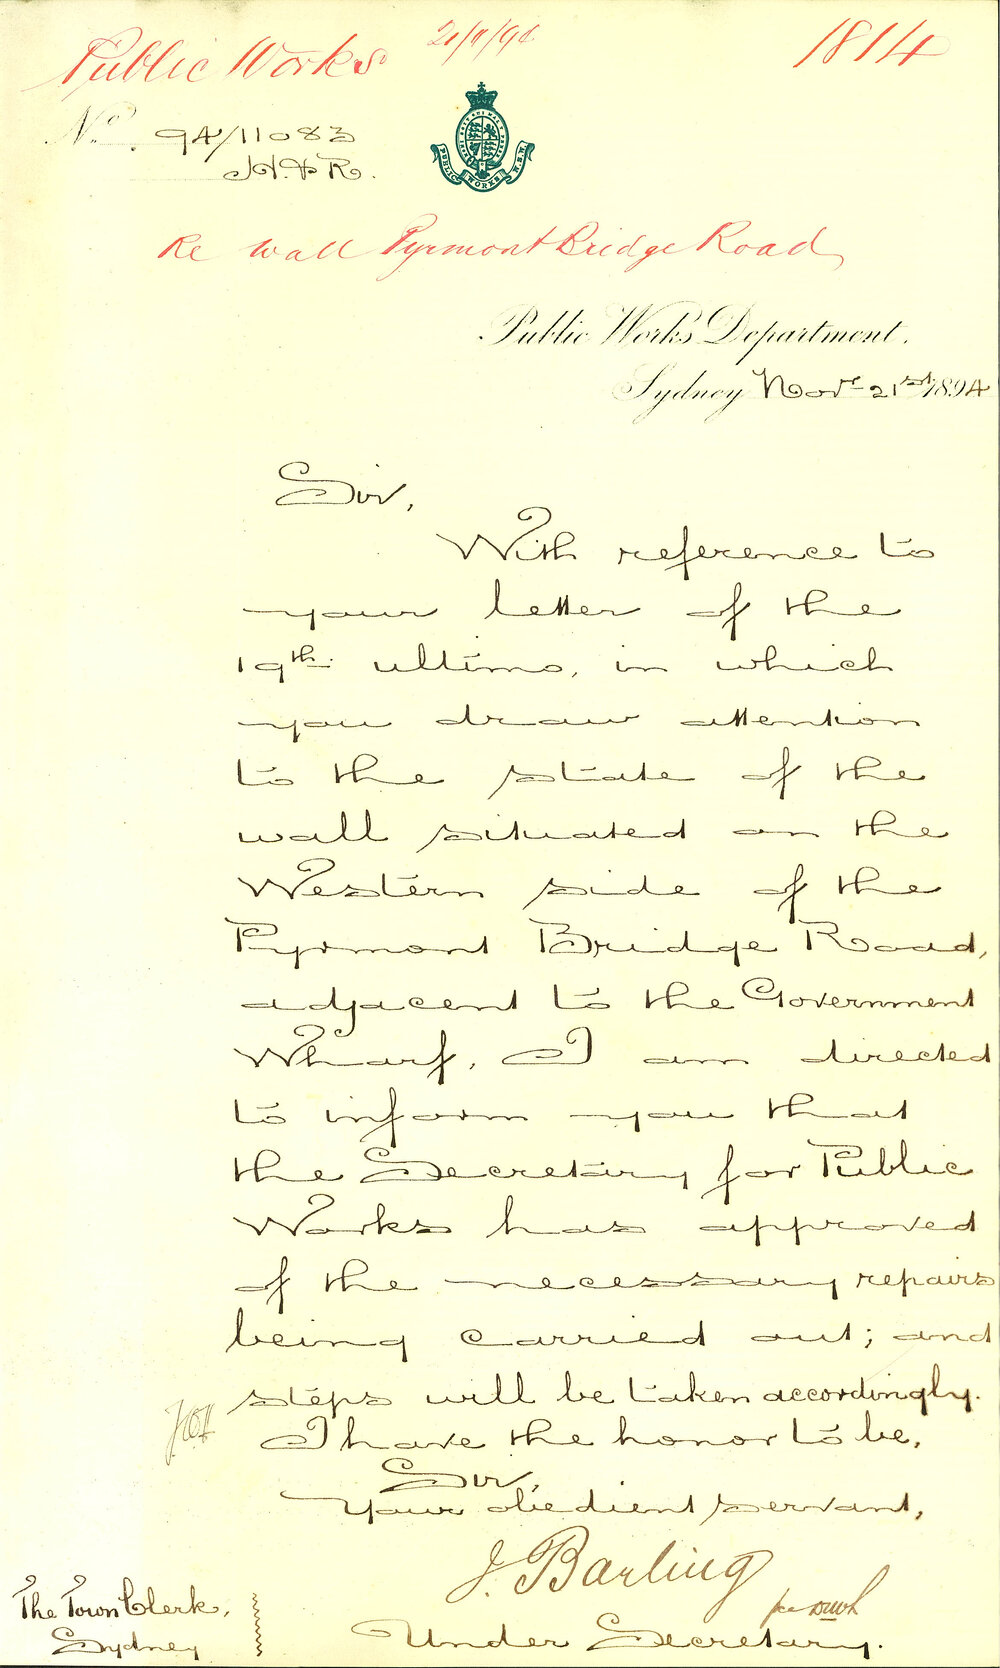 Public Works 21/11/94 1814
No. 94/11083
H.& R.
PUBLIC WORKS N.S.W.
Re Wall Pyrmont Bridge Road
Public Works Department.
Sydney Novr 21st 1894
Sir,
With reference to
your letter of the
19th ultimo, in which
you draw attention
to the state of the
wall situated on the
Western side of the
Pyrmont Bridge Road,
adjacent to the Government
Wharf, I am directed
to inform you that
the Secretary for Public
Works has approved
of the necessary repairs
being carried out; and
steps will be taken accordingly.
I have the honor to be,
Sir,
Your obedient servant,
J. Barling
Under Secretary.
The Town Clerk,
Sydney